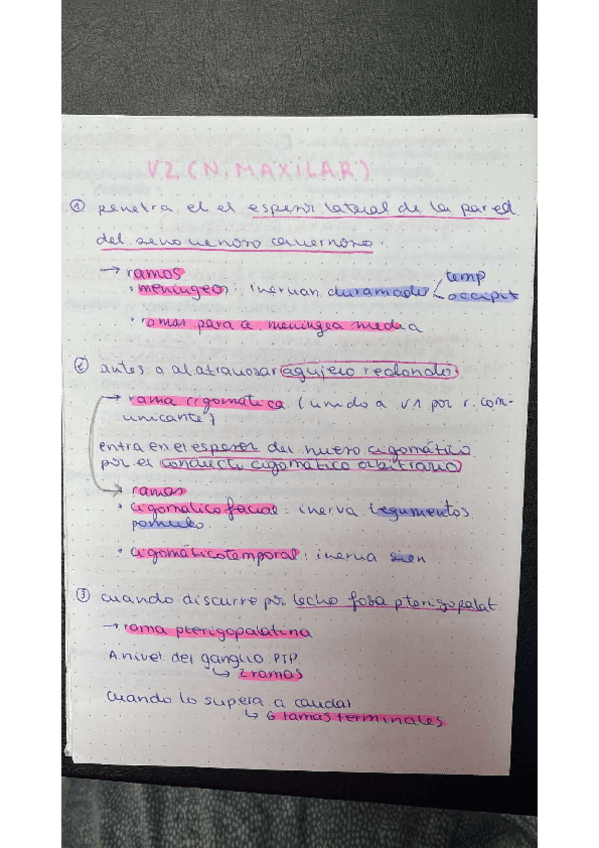 V2 (N. MAXILAR)
① penetra el el espesor lateral de la pared
del seno venoso cavernoso.
→ ramos
· meníngeos: inervan duramadre temp
occipit
· ramas para a meníngea media
② antes o al atravesar agujero redondo
→ rama cigomática (unido a V1 por r. com-
unicante)
entra en el espesor del hueso cigomático
por el conducto cigomático orbitario
ramas
· cigomático facial: inerva tegumentos
pomulo
· cigomáticotemporal: inerva sien
③ cuando discurre por lecho fosa pterigopalat
→ rama pterigopalatina
A nivel del ganglio PTP
↳ 2 ramos
Cuando lo supera a caudal
↳ 6 ramas terminales